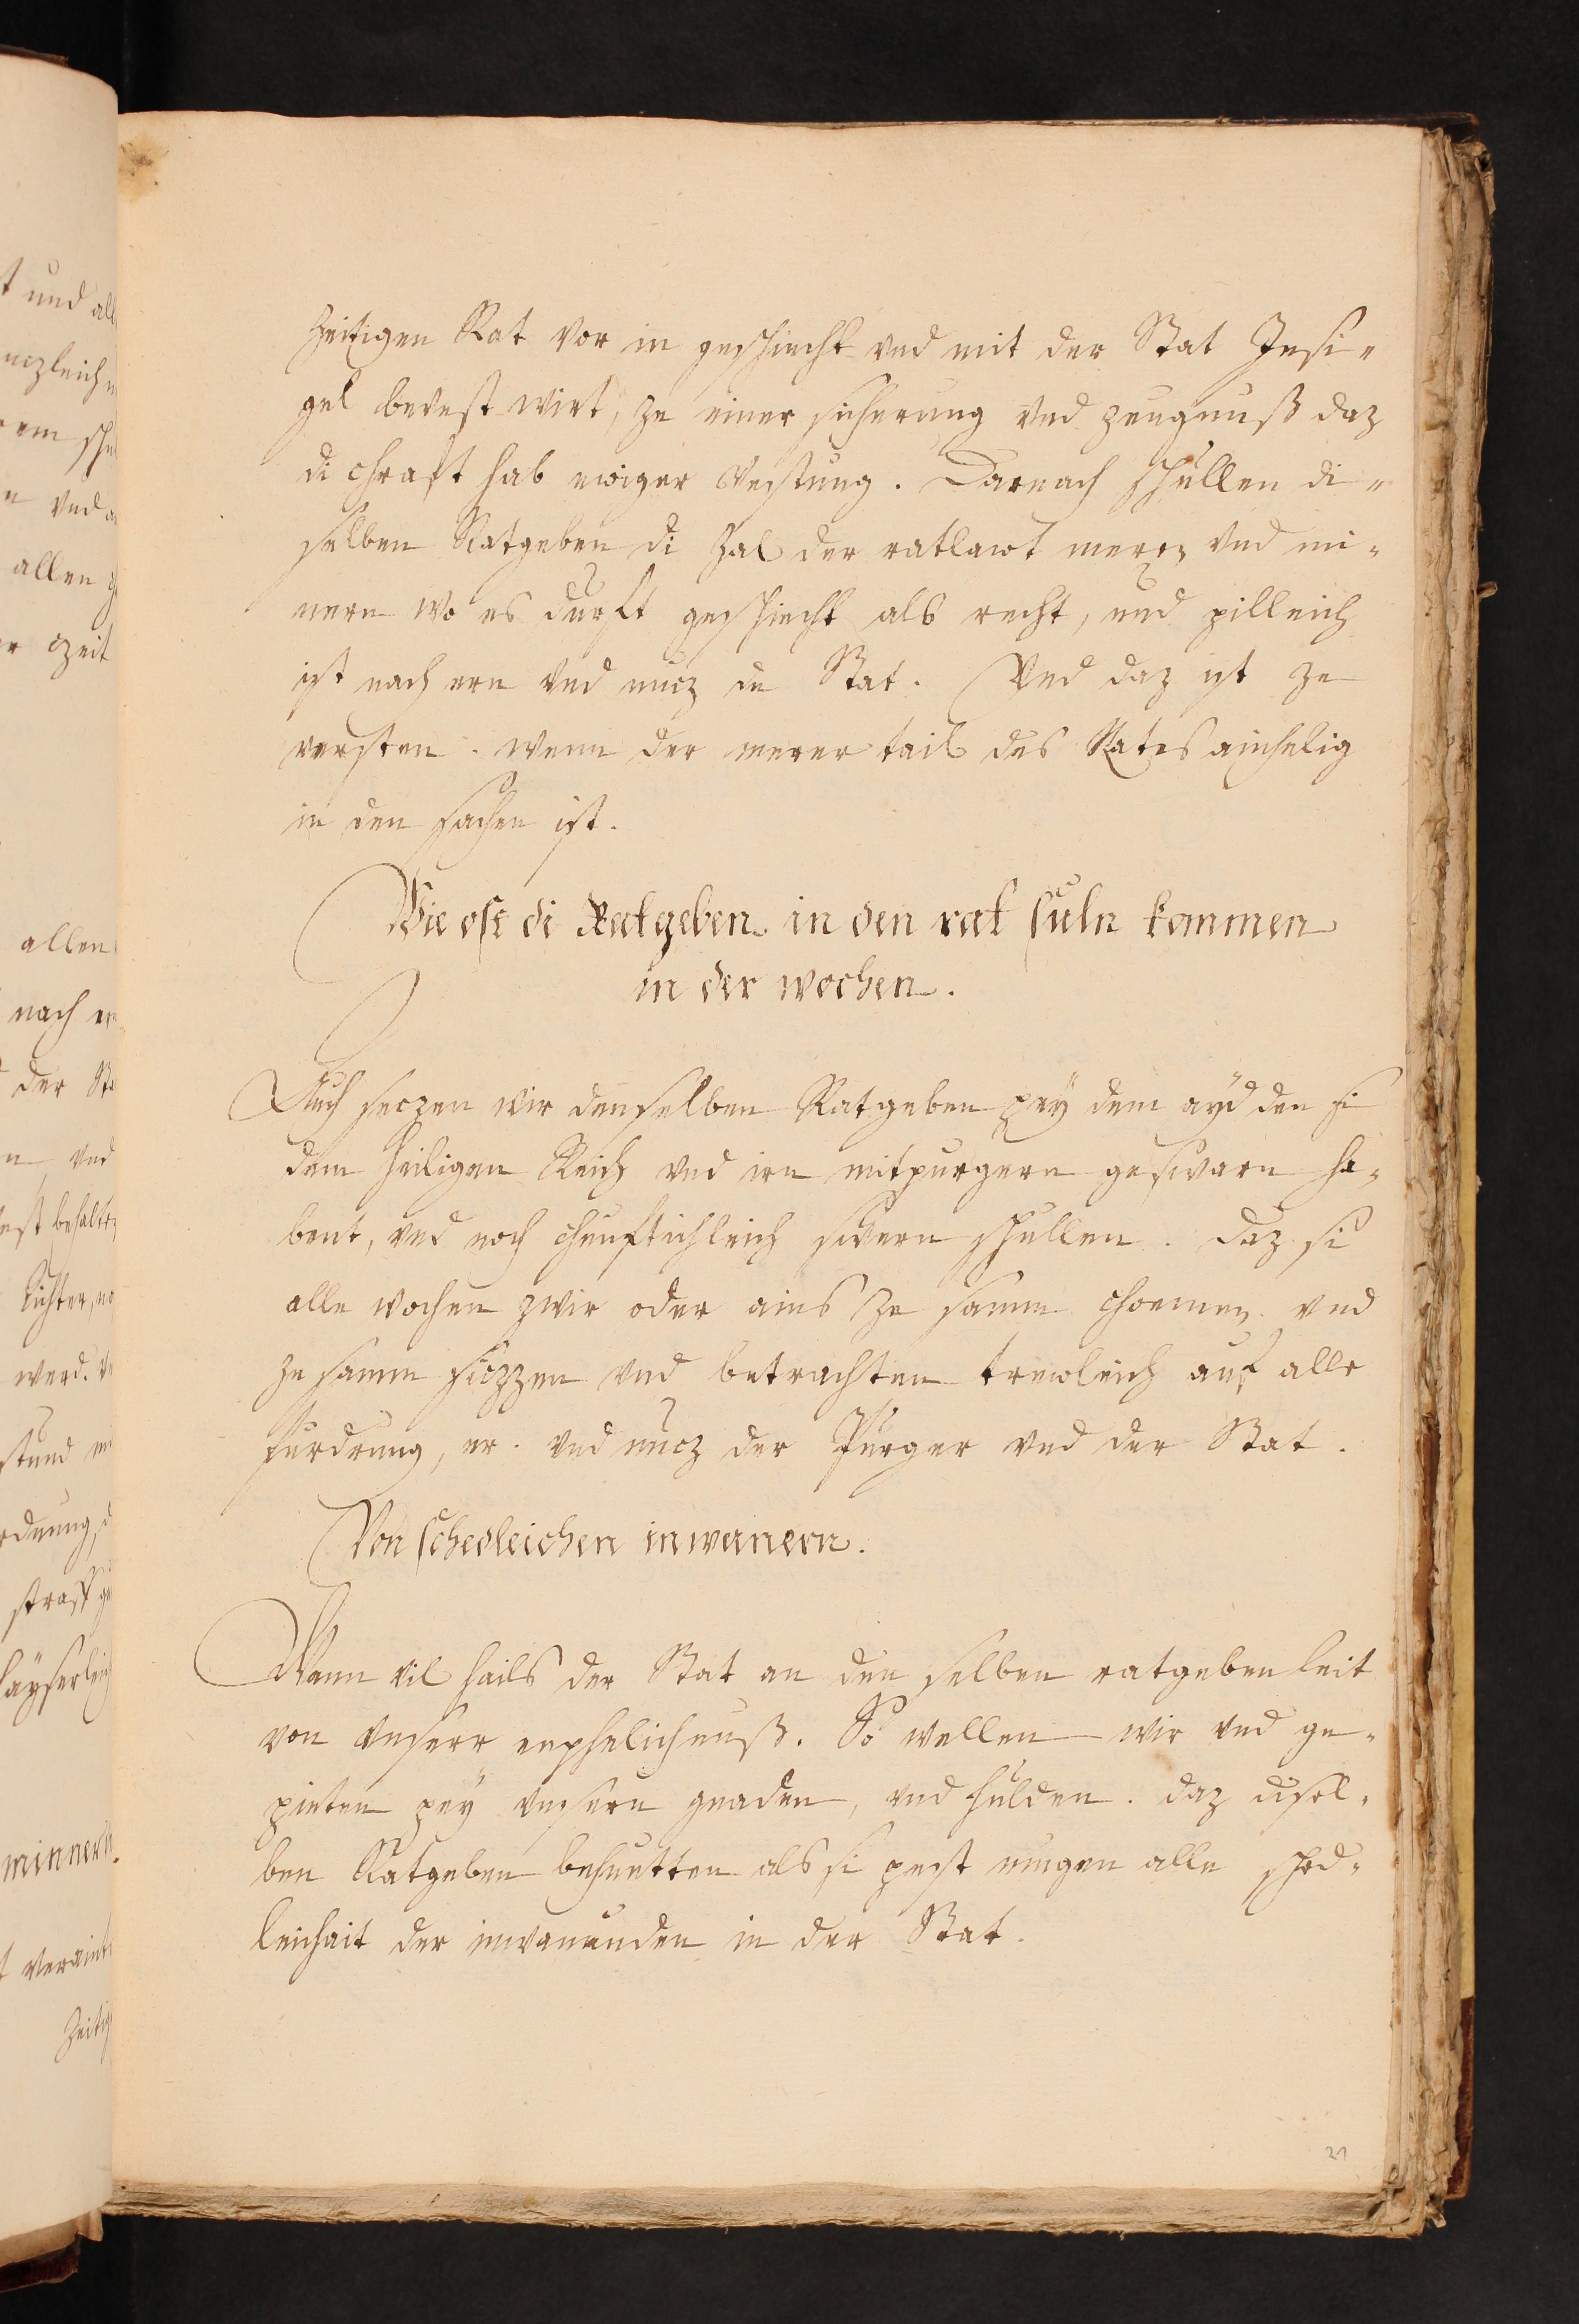 Zeitigen Rat vor in geschiecht vnd mit der Stat Insi-
gel bevest wirt, ze einer sicherung vnd zeugnuß daz
di chraft hab ewiger vestung. Darnach schullen di-
selben Ratgeben di Zal der ratlawt meren vnd mi-
nern wo es durft geschiecht als recht, und pilleich
ist nach ern vnd nucz der Stat. Vnd daz ist ze
versten. wenn der merer tail des Rates ainhelig
in den sachen ist.
Wie oft di Ratgeben in den rat suln kommen
in der wochen.
Auch seczen wir denselben Ratgeben pey dem ayd den si
dem heiligen Reich vnd irn mitpurgern geswarn ha-
bent, vnd noch chunftichleich swern schullen. daz si
alle wochen zwir oder ains ze samm choemen. vnd
ze samm siczzen vnd betrachten trewleich auf alle
furdrung, er. vnd nucz der Purger vnd der Stat.
Von schedleichen inwanern.
Wann vil hails der Stat an den selben ratgeben leit
von vnserr enphelichnuß. So wellen wir vnd ge-
pieten pey vnsern gnaden, vnd hulden. daz disel-
ben Ratgeben behuetten als si pest mugen alle sched-
leichait der inwanunden in der Stat.
21
t und all
allen
r czeit
allen
nach er
der St
n vnd
werd. V
stund
straff
minnern.
veraint
Zeitig